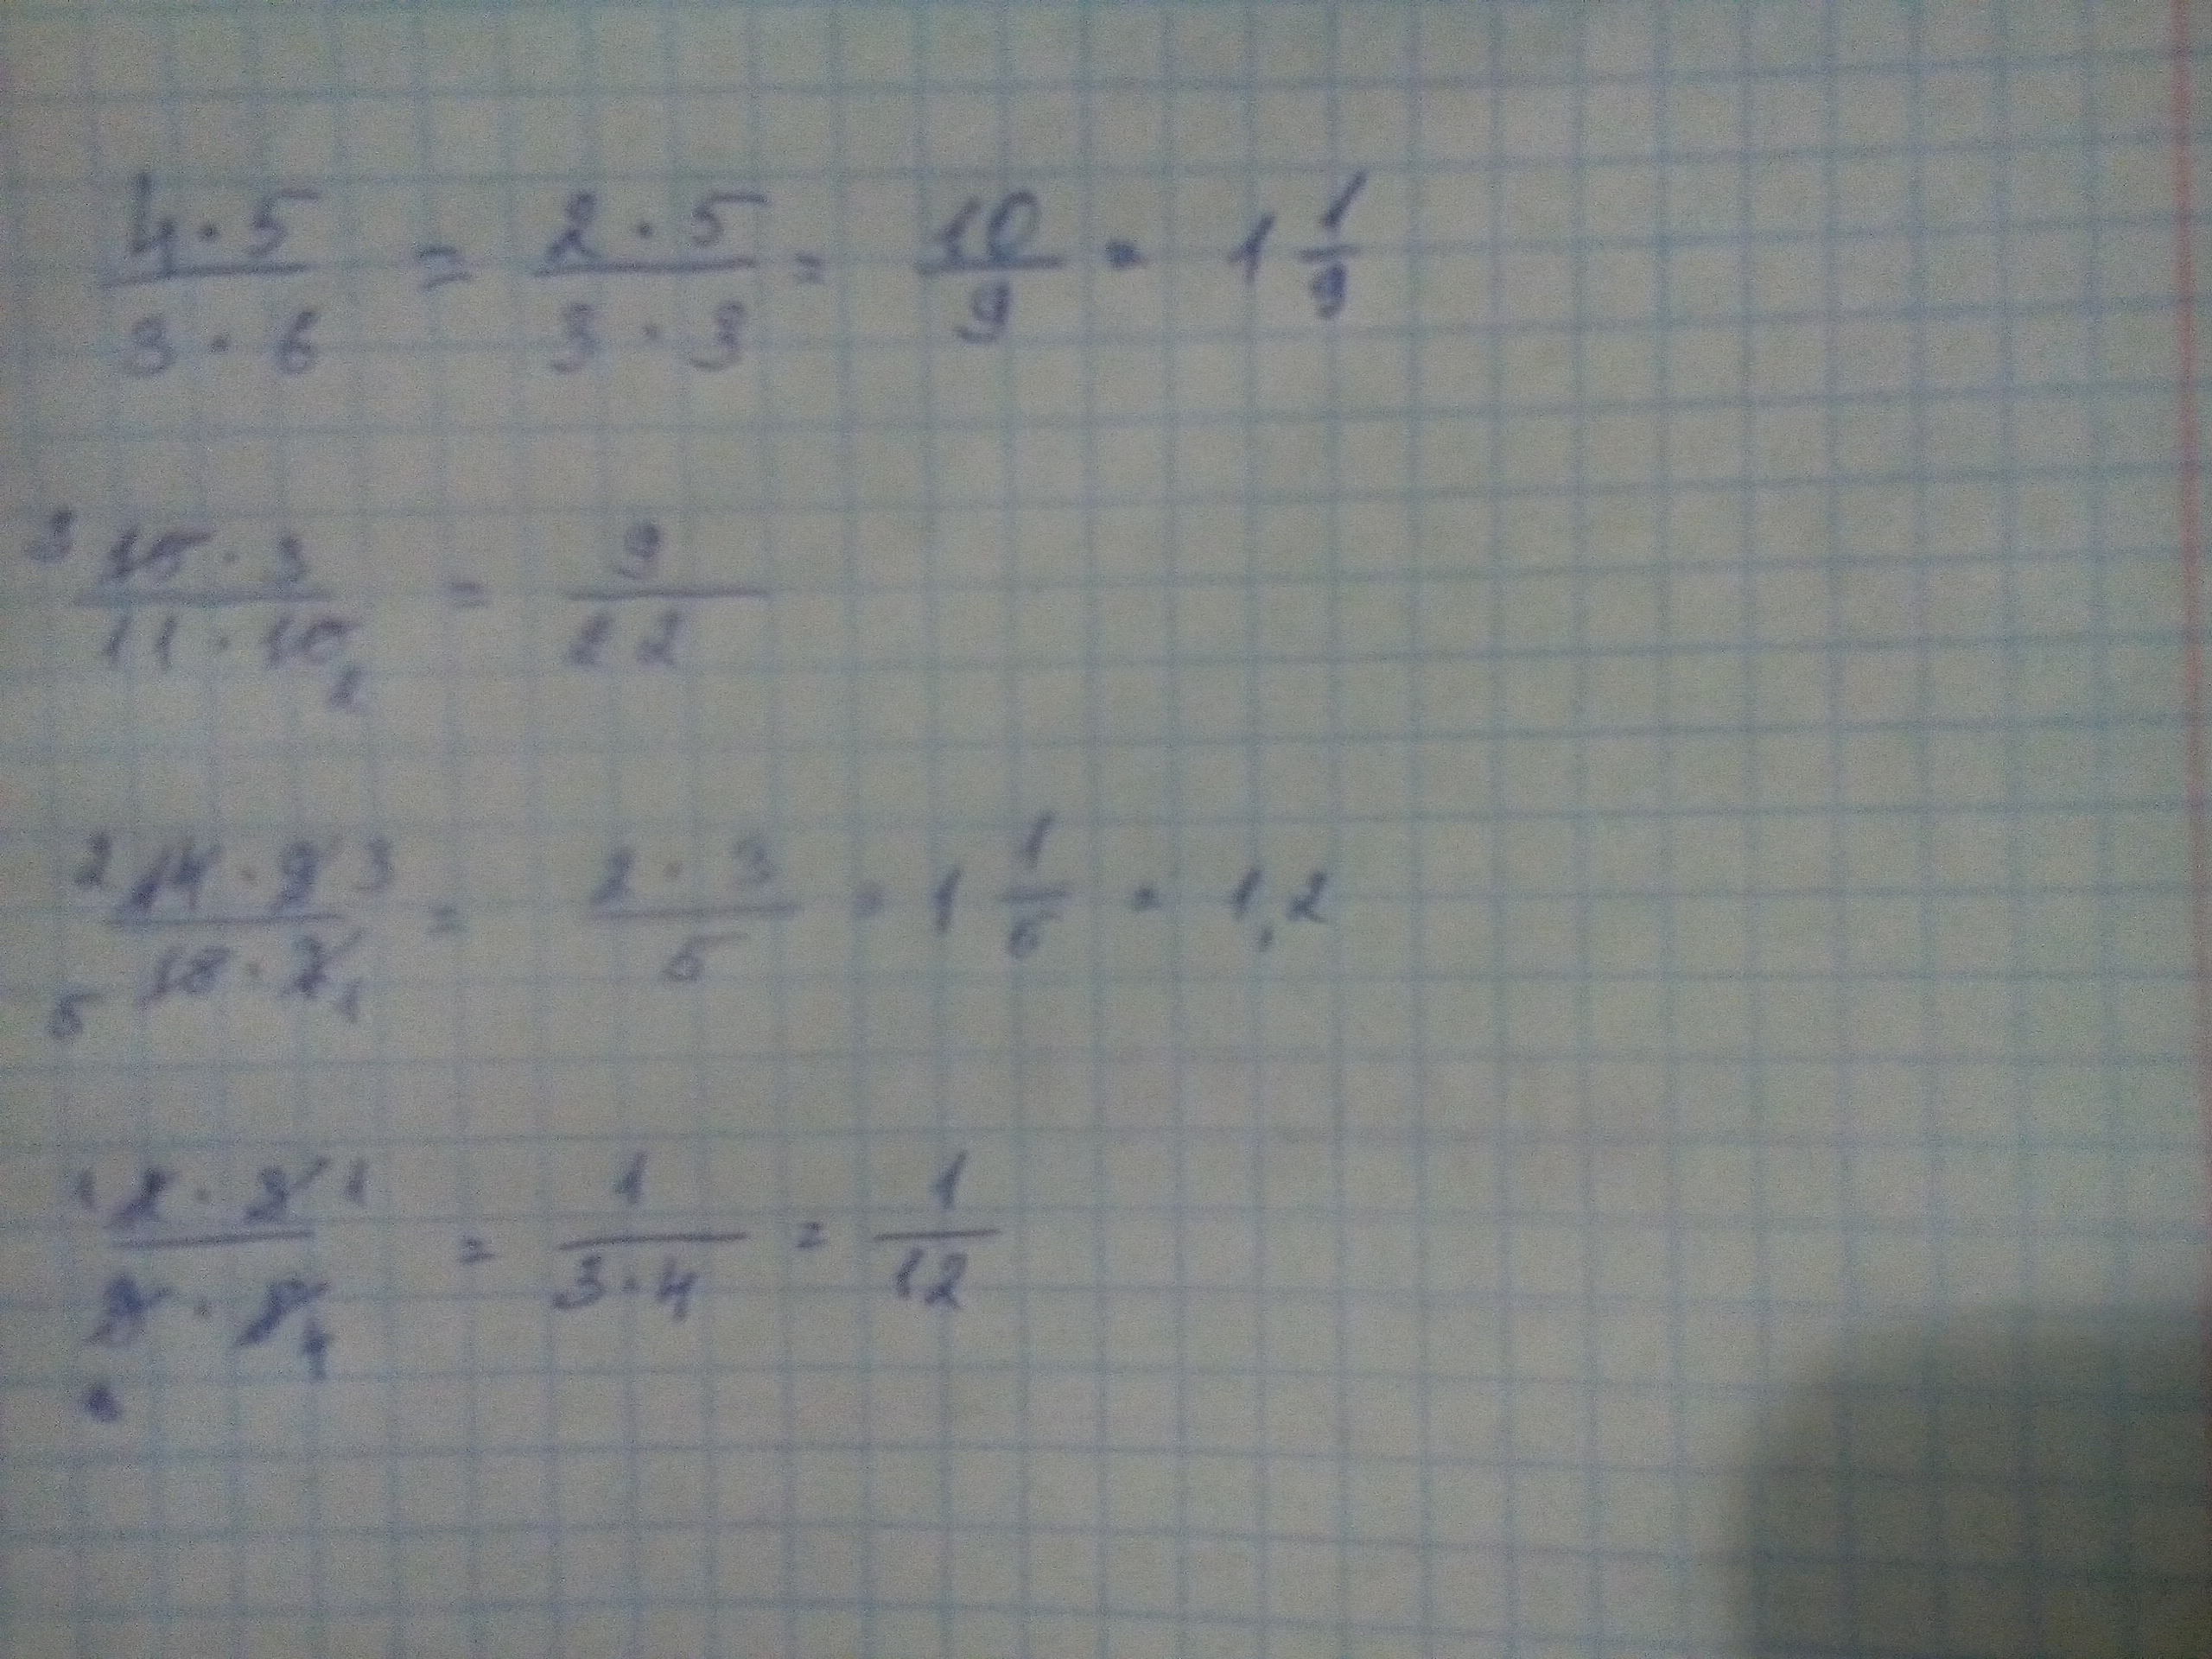 4 · 5 / 3 · 6 = 2 · 5 / 3 · 3 = 10 / 9 = 1 1/9
3 15 · 3 / 11 · 10 2 = 9 / 22
2 14 · 9 3 / 5 15 · 7 1 = 2 · 3 / 5 = 1 1/5 = 1,2
1 · 1 / · 4 = 1 / 3 · 4 = 1 / 12